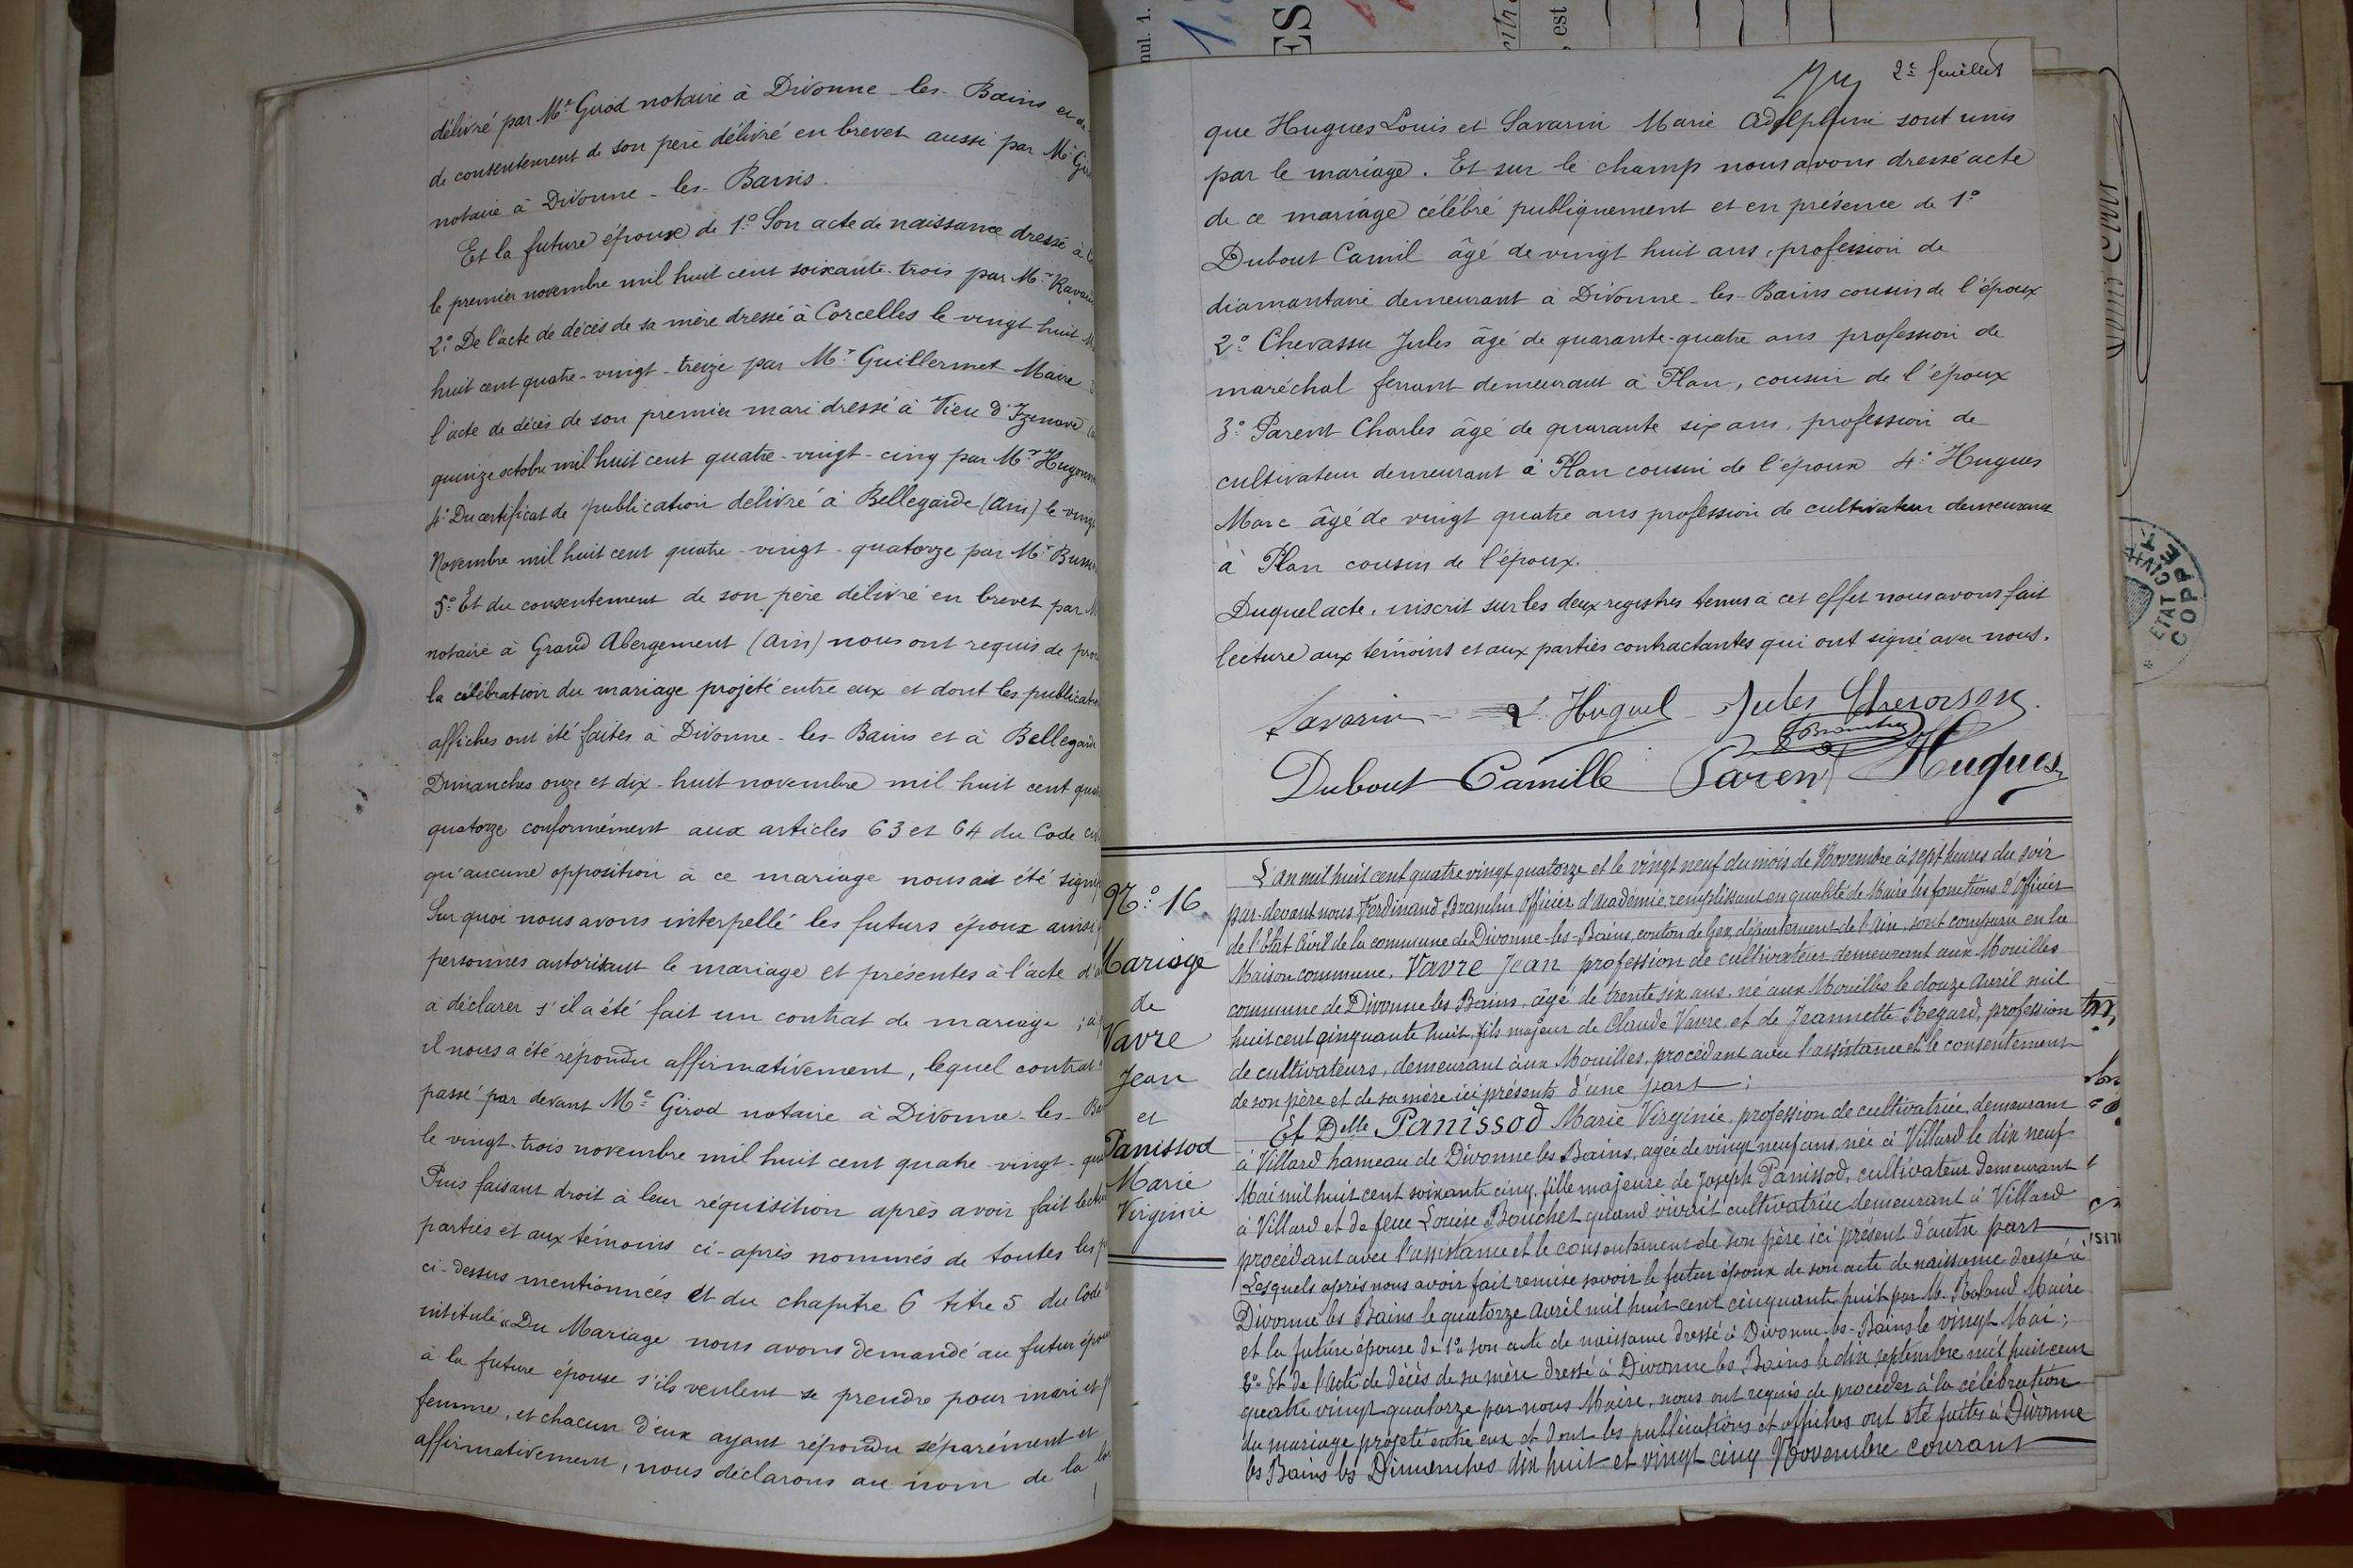 délivré par Mᵉ Girod notaire à Divonne-les-Bains et de
de consentement de son père délivré en brevet aussi par Mᵉ
notaire à Divonne-les-Bains.
Et la future épouse de 1° Son acte de naissance dressé à
le premier novembre mil huit cent soixante-trois par Mʳ
2° De l'acte de décès de sa mère dressé à Corcelles le vingt huit
huit cent quatre-vingt-treize par Mʳ Guillermet Maire
l'acte de décès de son premier mari dressé à Vieu d'Izenave
quinze octobre mil huit cent quatre-vingt-cinq par Mʳ
4° Du certificat de publication délivré à Bellegarde (Ain) le
Novembre mil huit cent quatre-vingt-quatorze par Mʳ
5° Et du consentement de son père délivré en brevet par
notaire à Grand Abergement (Ain) nous ont requis de
la célébration du mariage projeté entre eux et dont les
affiches ont été faites à Divonne-les-Bains et à Bellegarde
Dimanches onze et dix-huit novembre mil huit cent
quatorze conformément aux articles 63 et 64 du Code
qu'aucune opposition à ce mariage nous ait été
Sur quoi nous avons interpellé les futurs époux ainsi
personnes autorisant le mariage et présentes à l'acte
à déclarer s'il a été fait un contrat de mariage ;
il nous a été répondu affirmativement, lequel contrat
passé par devant Mᵉ Girod notaire à Divonne-les-
le vingt-trois novembre mil huit cent quatre-vingt-
Puis faisant droit à leur réquisition après avoir fait
parties et aux témoins ci-après nommés de toutes les
ci-dessus mentionnées et du chapitre 6 titre 5 du Code
intitulé « Du Mariage nous avons demandé au futur
à la future épouse s'ils veulent se prendre pour mari et
femme, et chacun d'eux ayant répondu séparément et
affirmativement, nous déclarons au nom de la
nul. 1.
ES
est
2ᵉ feuillet
que Hugues Louis et Savarin Marie Adelphine sont unis
par le mariage. Et sur le champ nous avons dressé acte
de ce mariage célébré publiquement et en présence de 1°
Dubout Camil âgé de vingt huit ans, profession de
diamantaire demeurant à Divonne-les-Bains cousin de l'époux
2° Chevassu Jules âgé de quarante-quatre ans profession de
maréchal ferrant demeurant à Plan, cousin de l'époux
3° Parent Charles âgé de quarante six ans, profession de
cultivateur demeurant à Plan cousin de l'époux 4° Hugues
Marc âgé de vingt quatre ans profession de cultivateur demeurant
à Plan cousin de l'époux.
Duquel acte, inscrit sur les deux registres tenus à cet effet nous avons fait
lecture aux témoins et aux parties contractantes qui ont signé avec nous.
Savarin L. Hugues Jules Chevassu
Dubout Camille Parent Hugues
N.° 16
Mariage
de
Vavre
Jean
et
Panissod
Marie
Virginie
L'an mil huit cent quatre vingt quatorze et le vingt neuf du mois de Novembre à sept heures du soir
par-devant nous Ferdinand Officier d'Académie remplissant en qualité de Maire les fonctions d'Officier
de l'Etat Civil de la commune de Divonne-les-Bains, canton de Gex, département de l'Ain, sont comparu en la
Maison commune. Vavre Jean profession de cultivateur demeurant aux Mouilles
commune de Divonne les Bains, âgé de trente six ans, né aux Mouilles le douze Avril mil
huit cent cinquante huit, fils majeur de Claude Vavre, et de Jeannette Regard, profession
de cultivateurs, demeurant aux Mouilles, procédant avec l'assistance et le consentement
de son père et de sa mère ici présents d'une part ;
Et Delle Panissod Marie Virginie, profession de cultivatrice, demeurant
à Villard hameau de Divonne les Bains, agée de vingt neuf ans, née à Villard le dix neuf
Mai mil huit cent soixante cinq, fille majeure de Joseph Panissod, cultivateur demeurant
à Villard et de feue Louise Bouchet quand vivait cultivatrice demeurant à Villard
procédant avec l'assistance et le consentement de son père ici présent d'autre part
Lesquels après nous avoir fait remise savoir le futur époux de son acte de naissance dressé à
Divonne les Bains le quatorze Avril mil huit cent cinquante huit par M. Maire
et la future épouse de 1° son acte de naissance dressé à Divonne-les-Bains le vingt Mai ;
2° Et de l'acte de décès de sa mère dressé à Divonne les Bains le dix septembre mil huit cent
quatre vingt quatorze par nous Maire, nous ont requis de procéder à la célébration
du mariage projeté entre eux et dont les publications et affiches ont été faites à Divonne
les Bains les Dimanches dix huit et vingt cinq Novembre courant
ETAT CIVIL
COPPET